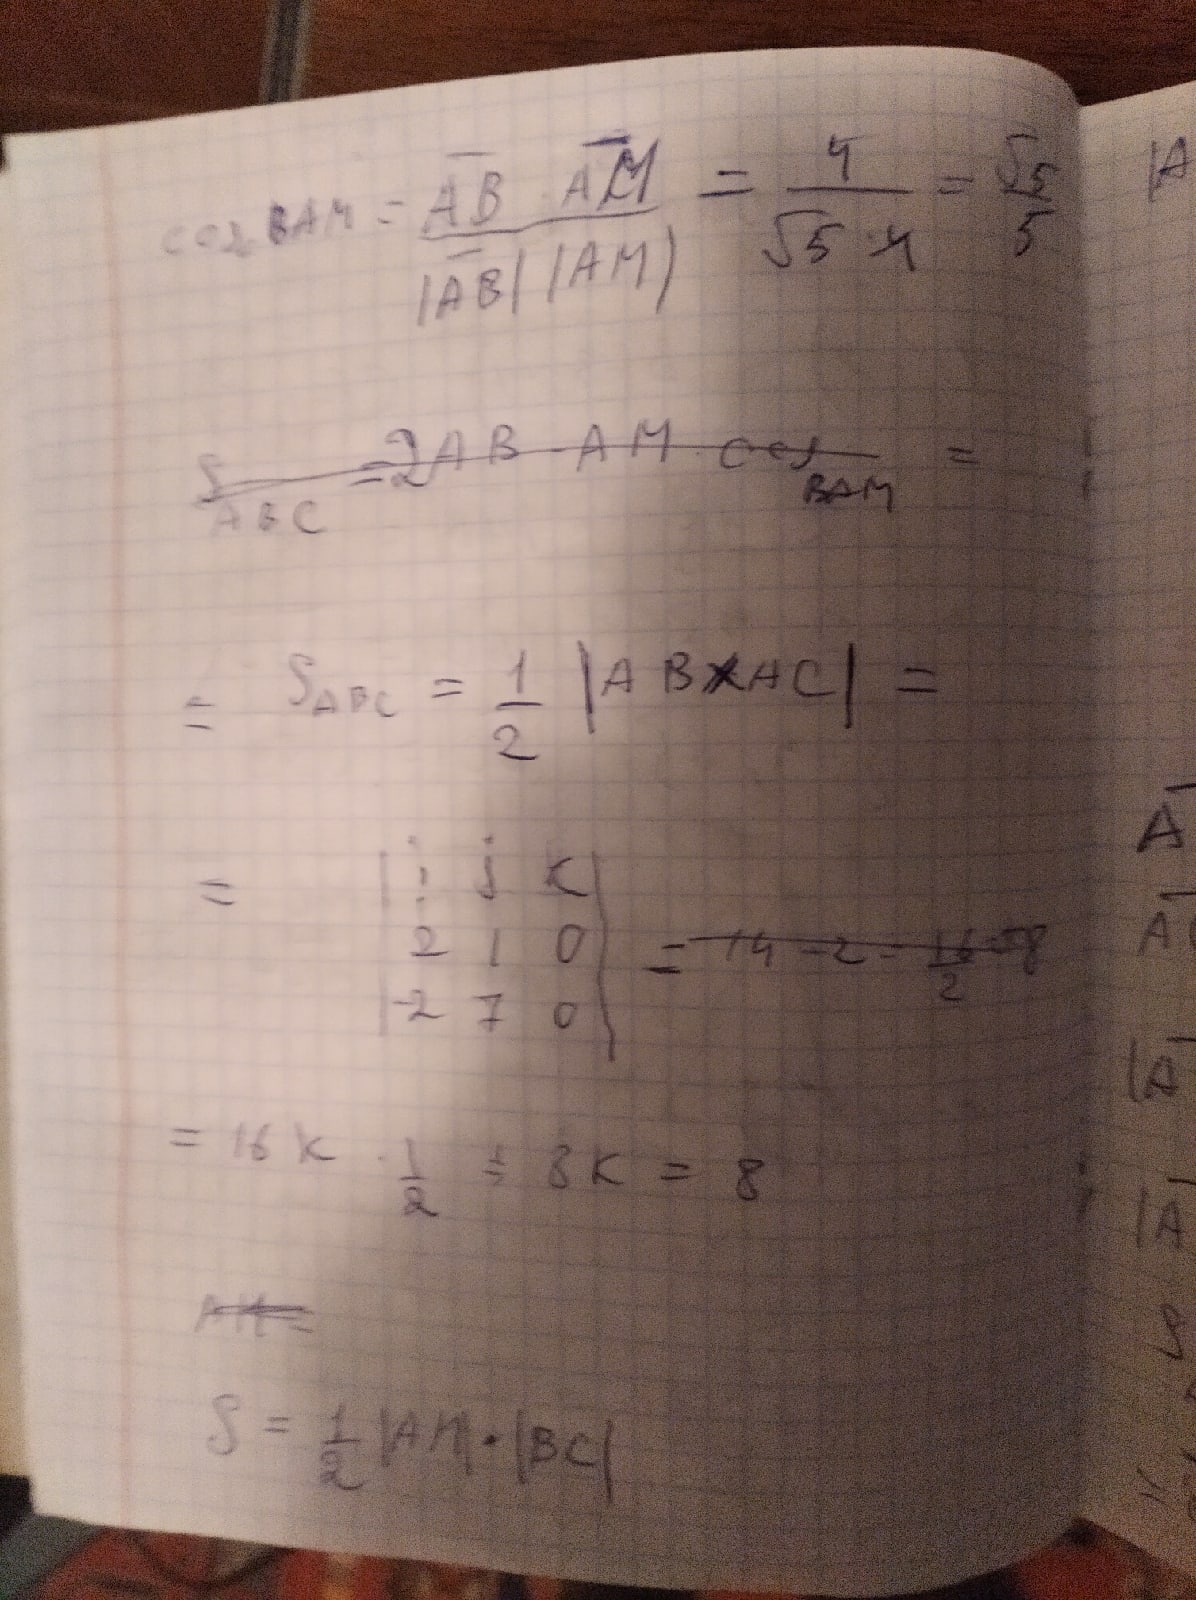 cos BAM = AB · AM / |AB| |AM| = 4 / √5 · 4 = √5 / 5
S ABC = 2AB · AM · cos BAM =
= S ABC = 1/2 |AB×AC| =
= | i j k |
| 2 1 0 | = 14 - 2 = 16/2 = 8
| -2 7 0 |
= 16 k · 1/2 = 8 k = 8
S = 1/2 |AH| · |BC|